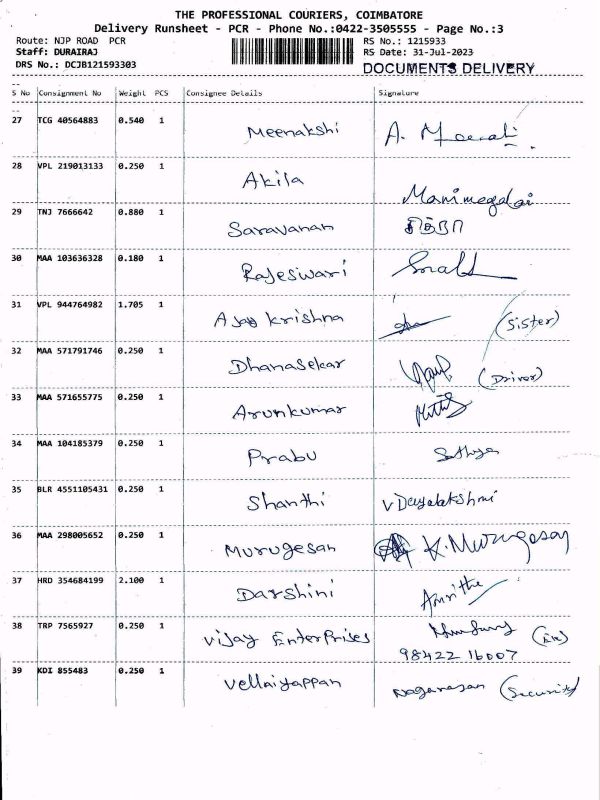 THE PROFESSIONAL COURIERS, COIMBATORE
Delivery Runsheet - PCR - Phone No.:0422-3505555 - Page No.:3
Route: NJP ROAD PCR RS No.: 1215933
Staff: DURAIRAJ RS Date: 31-Jul-2023
DRS No.: DCJB121593303 DOCUMENTS DELIVERY
S No Consignment No Weight PCS Consignee Details Signature
27 TCG 40564883 0.540 1 Meenakshi A.
28 VPL 219013133 0.250 1 Akila Manimegalai
29 TNJ 7666642 0.880 1 Saravanan
30 MAA 103636328 0.180 1 Rajeswari
31 VPL 944764982 1.705 1 Ajay Krishna (Sister)
32 MAA 571791746 0.250 1 Dhanasekar (Driver)
33 MAA 571655775 0.250 1 Arunkumar
34 MAA 104185379 0.250 1 Prabu Sathya
35 BLR 4551105431 0.250 1 Shanthi
36 MAA 298005652 0.250 1 Murugesan K. Murugesan
37 HRD 354684199 2.100 1 Darshini Amritha
38 TRP 7565927 0.250 1 Vijay Enterprises
98422 16007
39 KDI 855483 0.250 1 Vellaiyappan Nagarasan (Security)